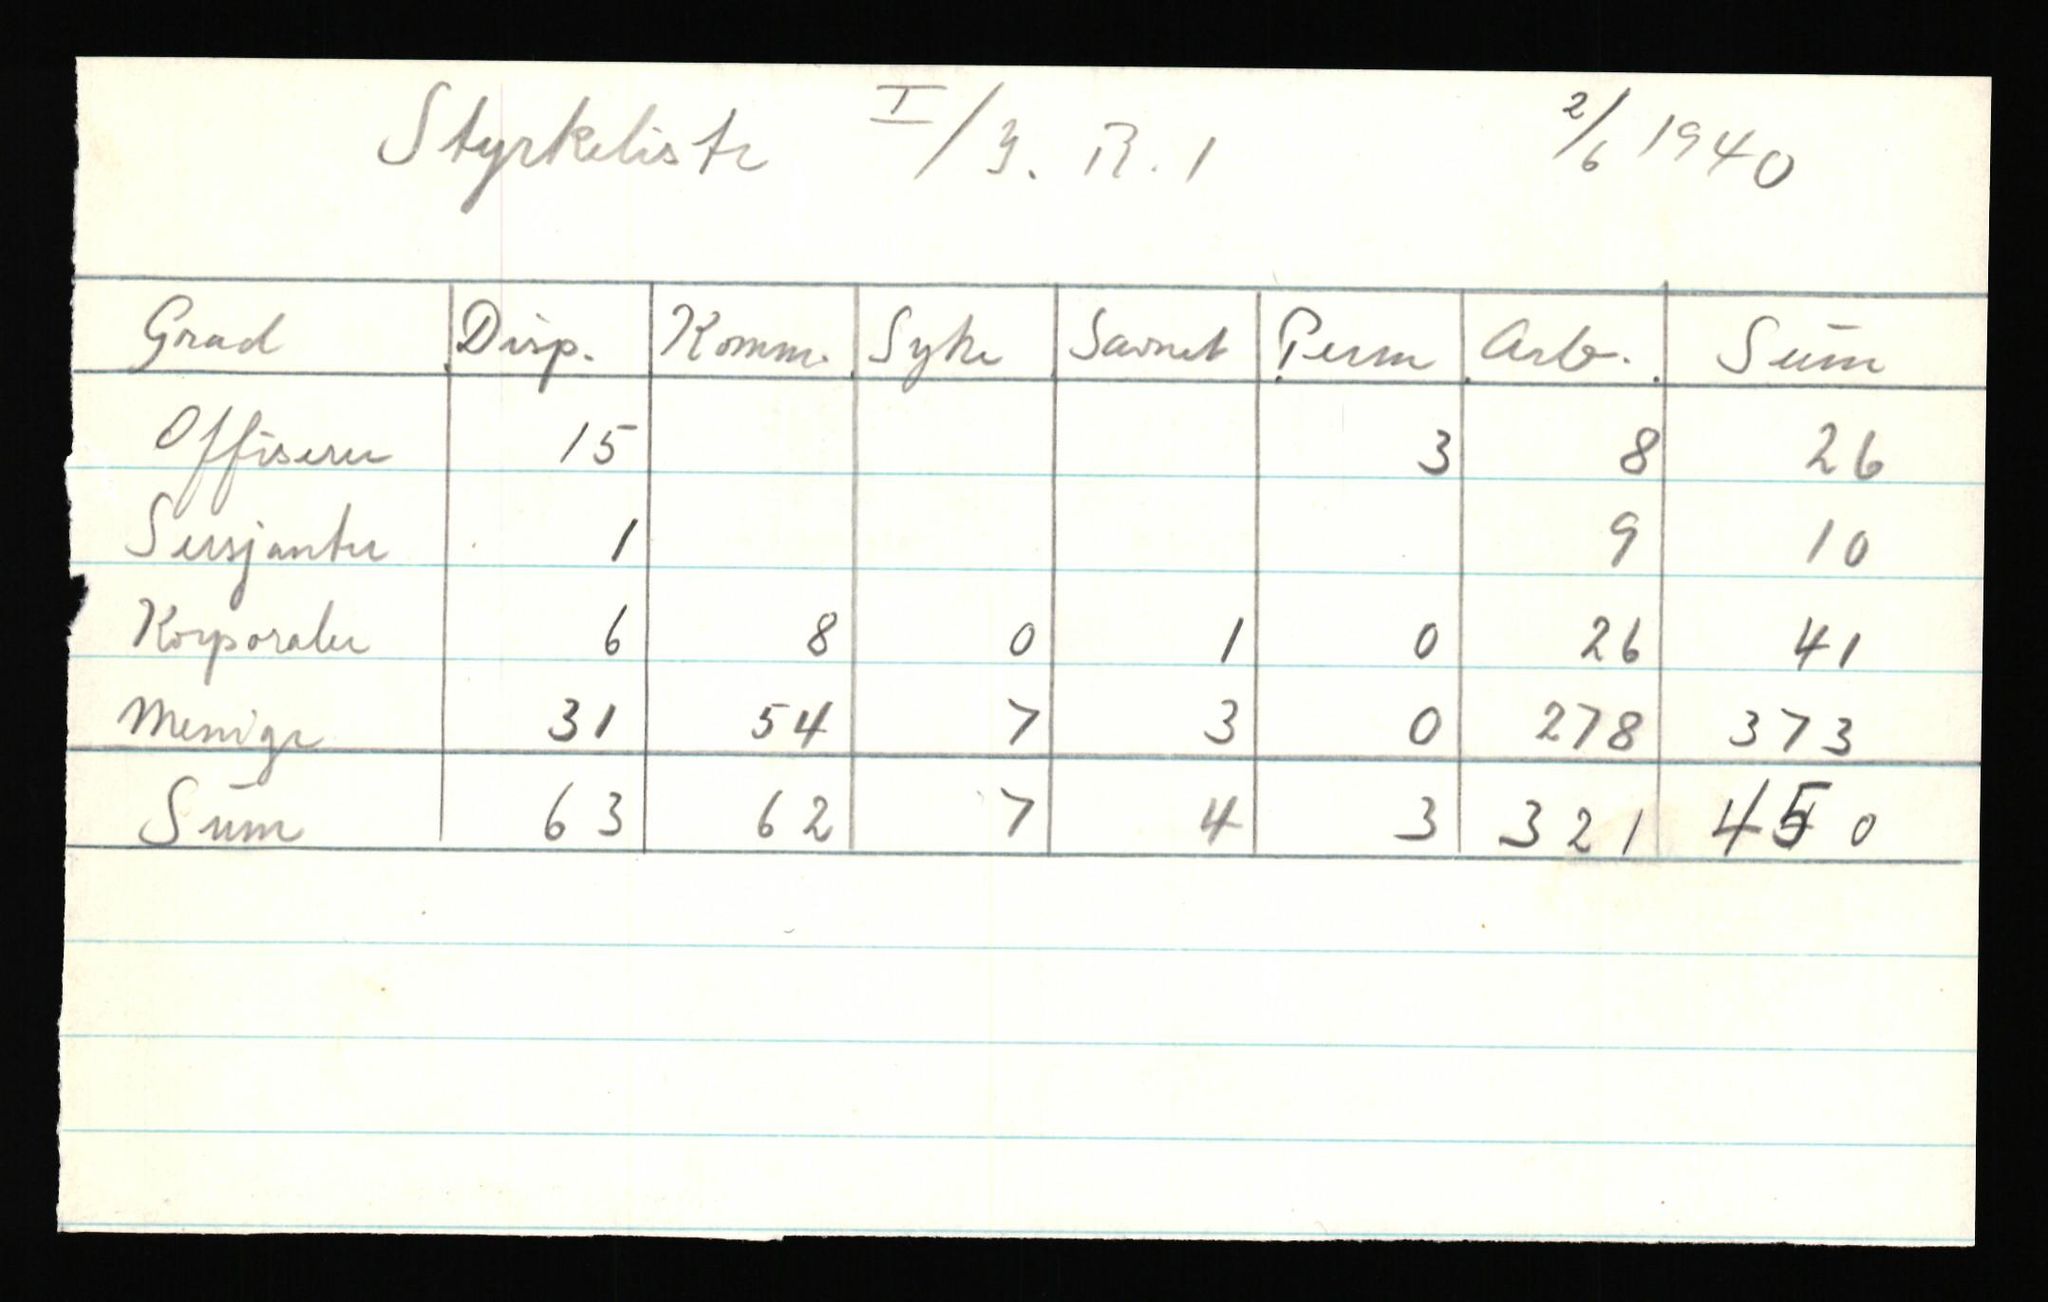 Styrkeliste I/J. R. 1 2/6 1940
Grad Disp. Komm. Syke Savnet Perm Arb. Sum
Offiserer 15 3 8 26
Sersjanter 1 9 10
Korporaler 6 8 0 1 0 26 41
Menige 31 54 7 3 0 278 373
Sum 63 62 7 4 3 321 450